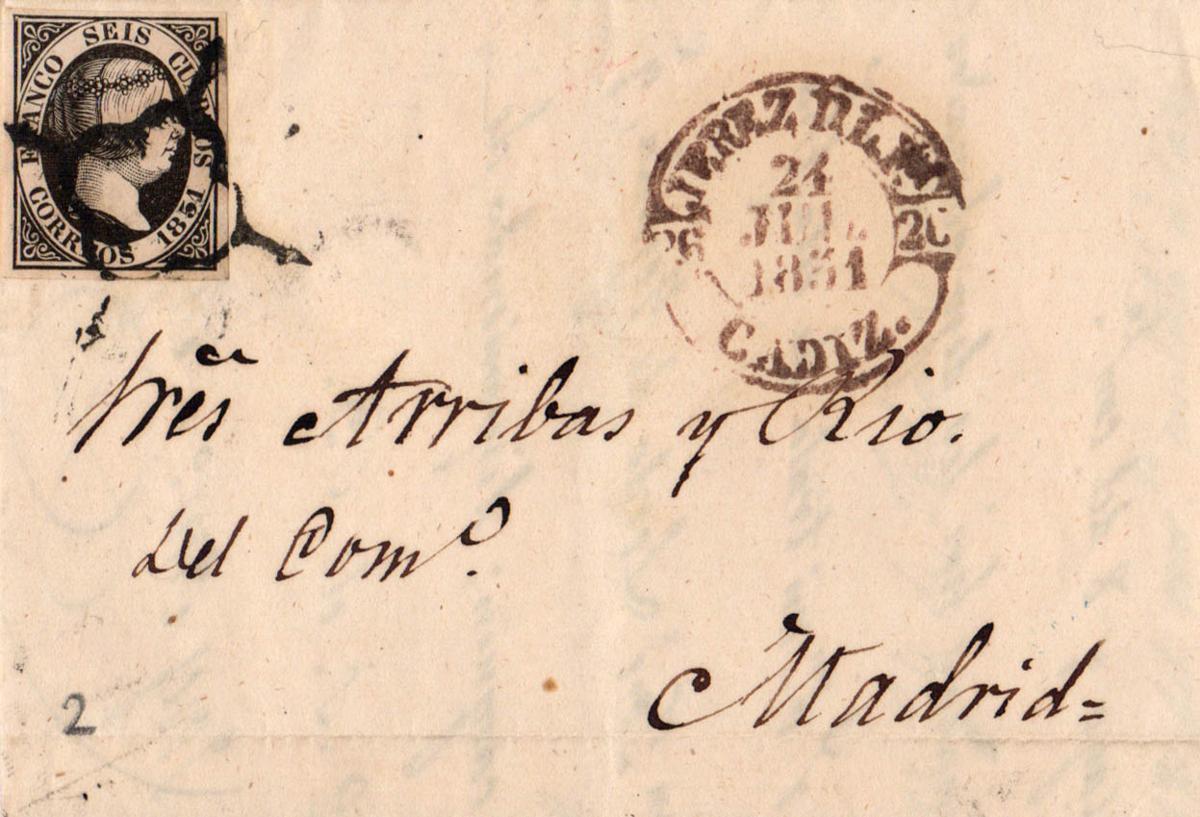 FRANCO SEIS CUARTOS
CORREOS 1851
JEREZ DE LA
24
JUL.
1851
26
CADIZ.
Sres Arribas y Rio.
Del Comº.
Madrid=
2